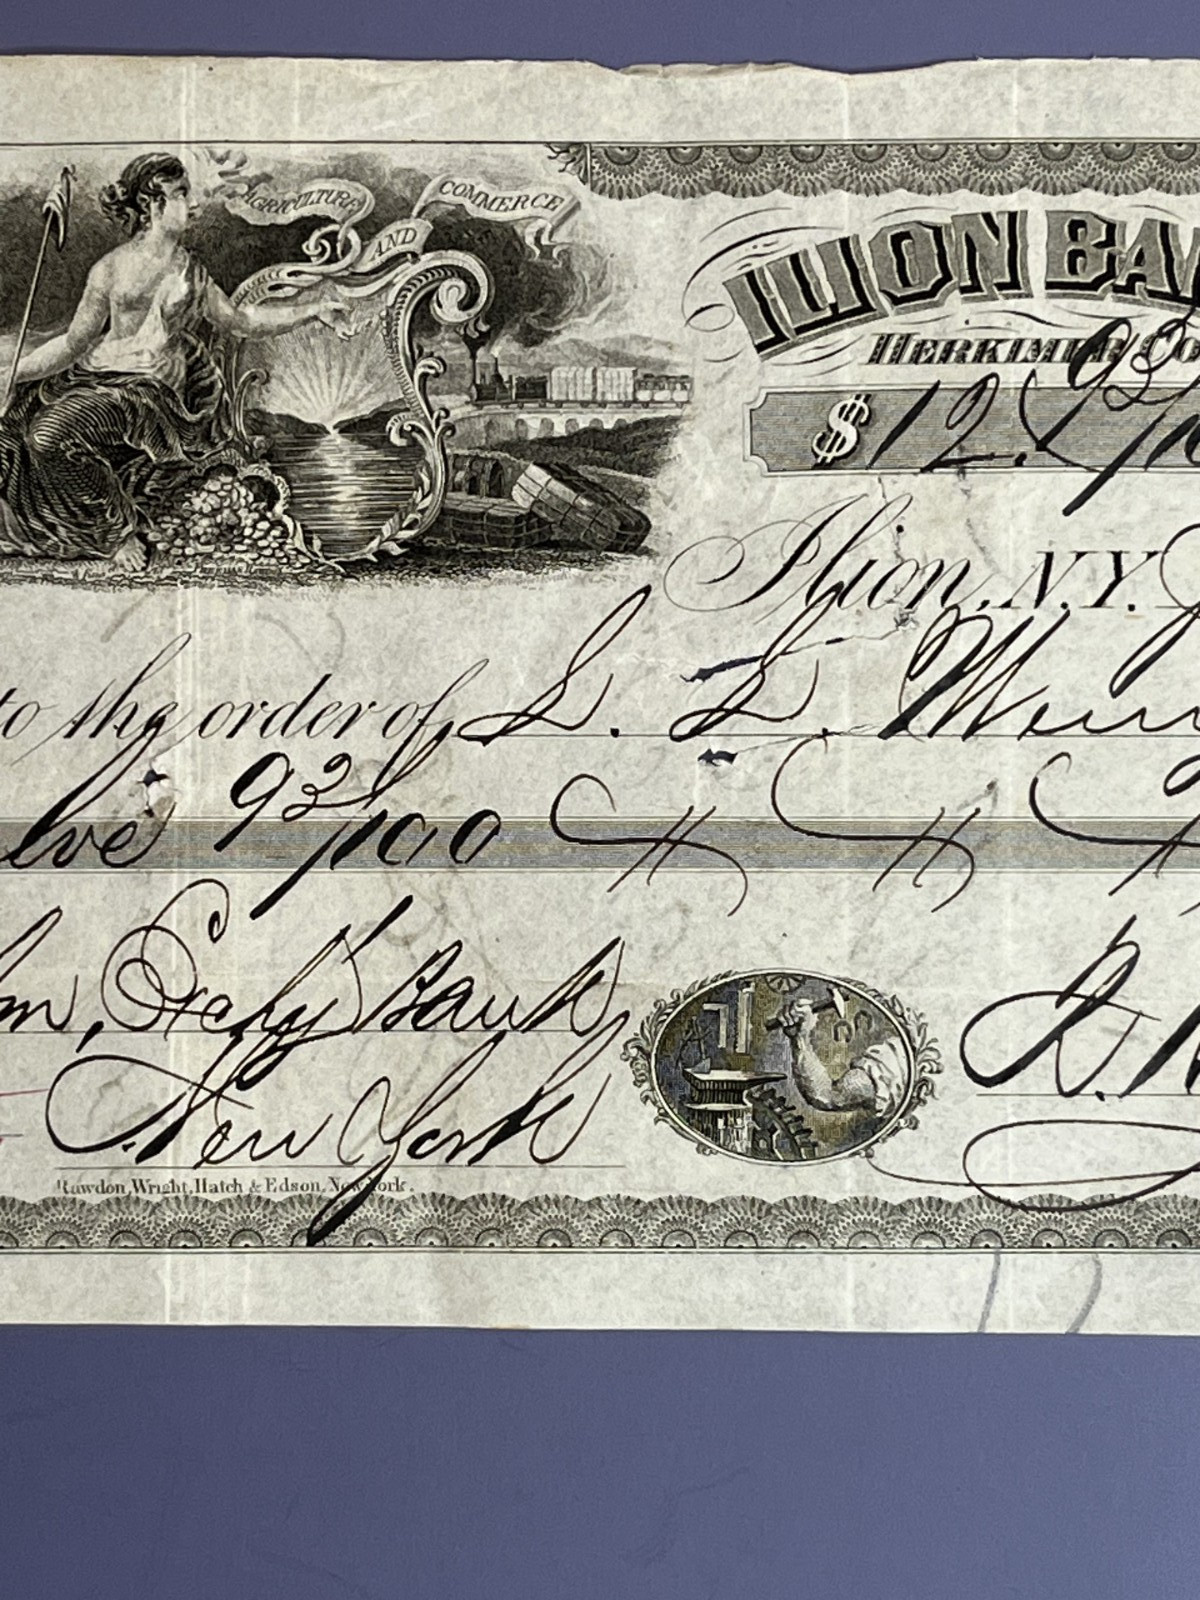 AGRICULTURE AND COMMERCE
ILION BA
HERKIMER Co
$12.93/10
Ilion, N.Y.
to the order of S. L.
lve 93/100
Bank
New York
Rawdon, Wright, Hatch & Edson, New York.